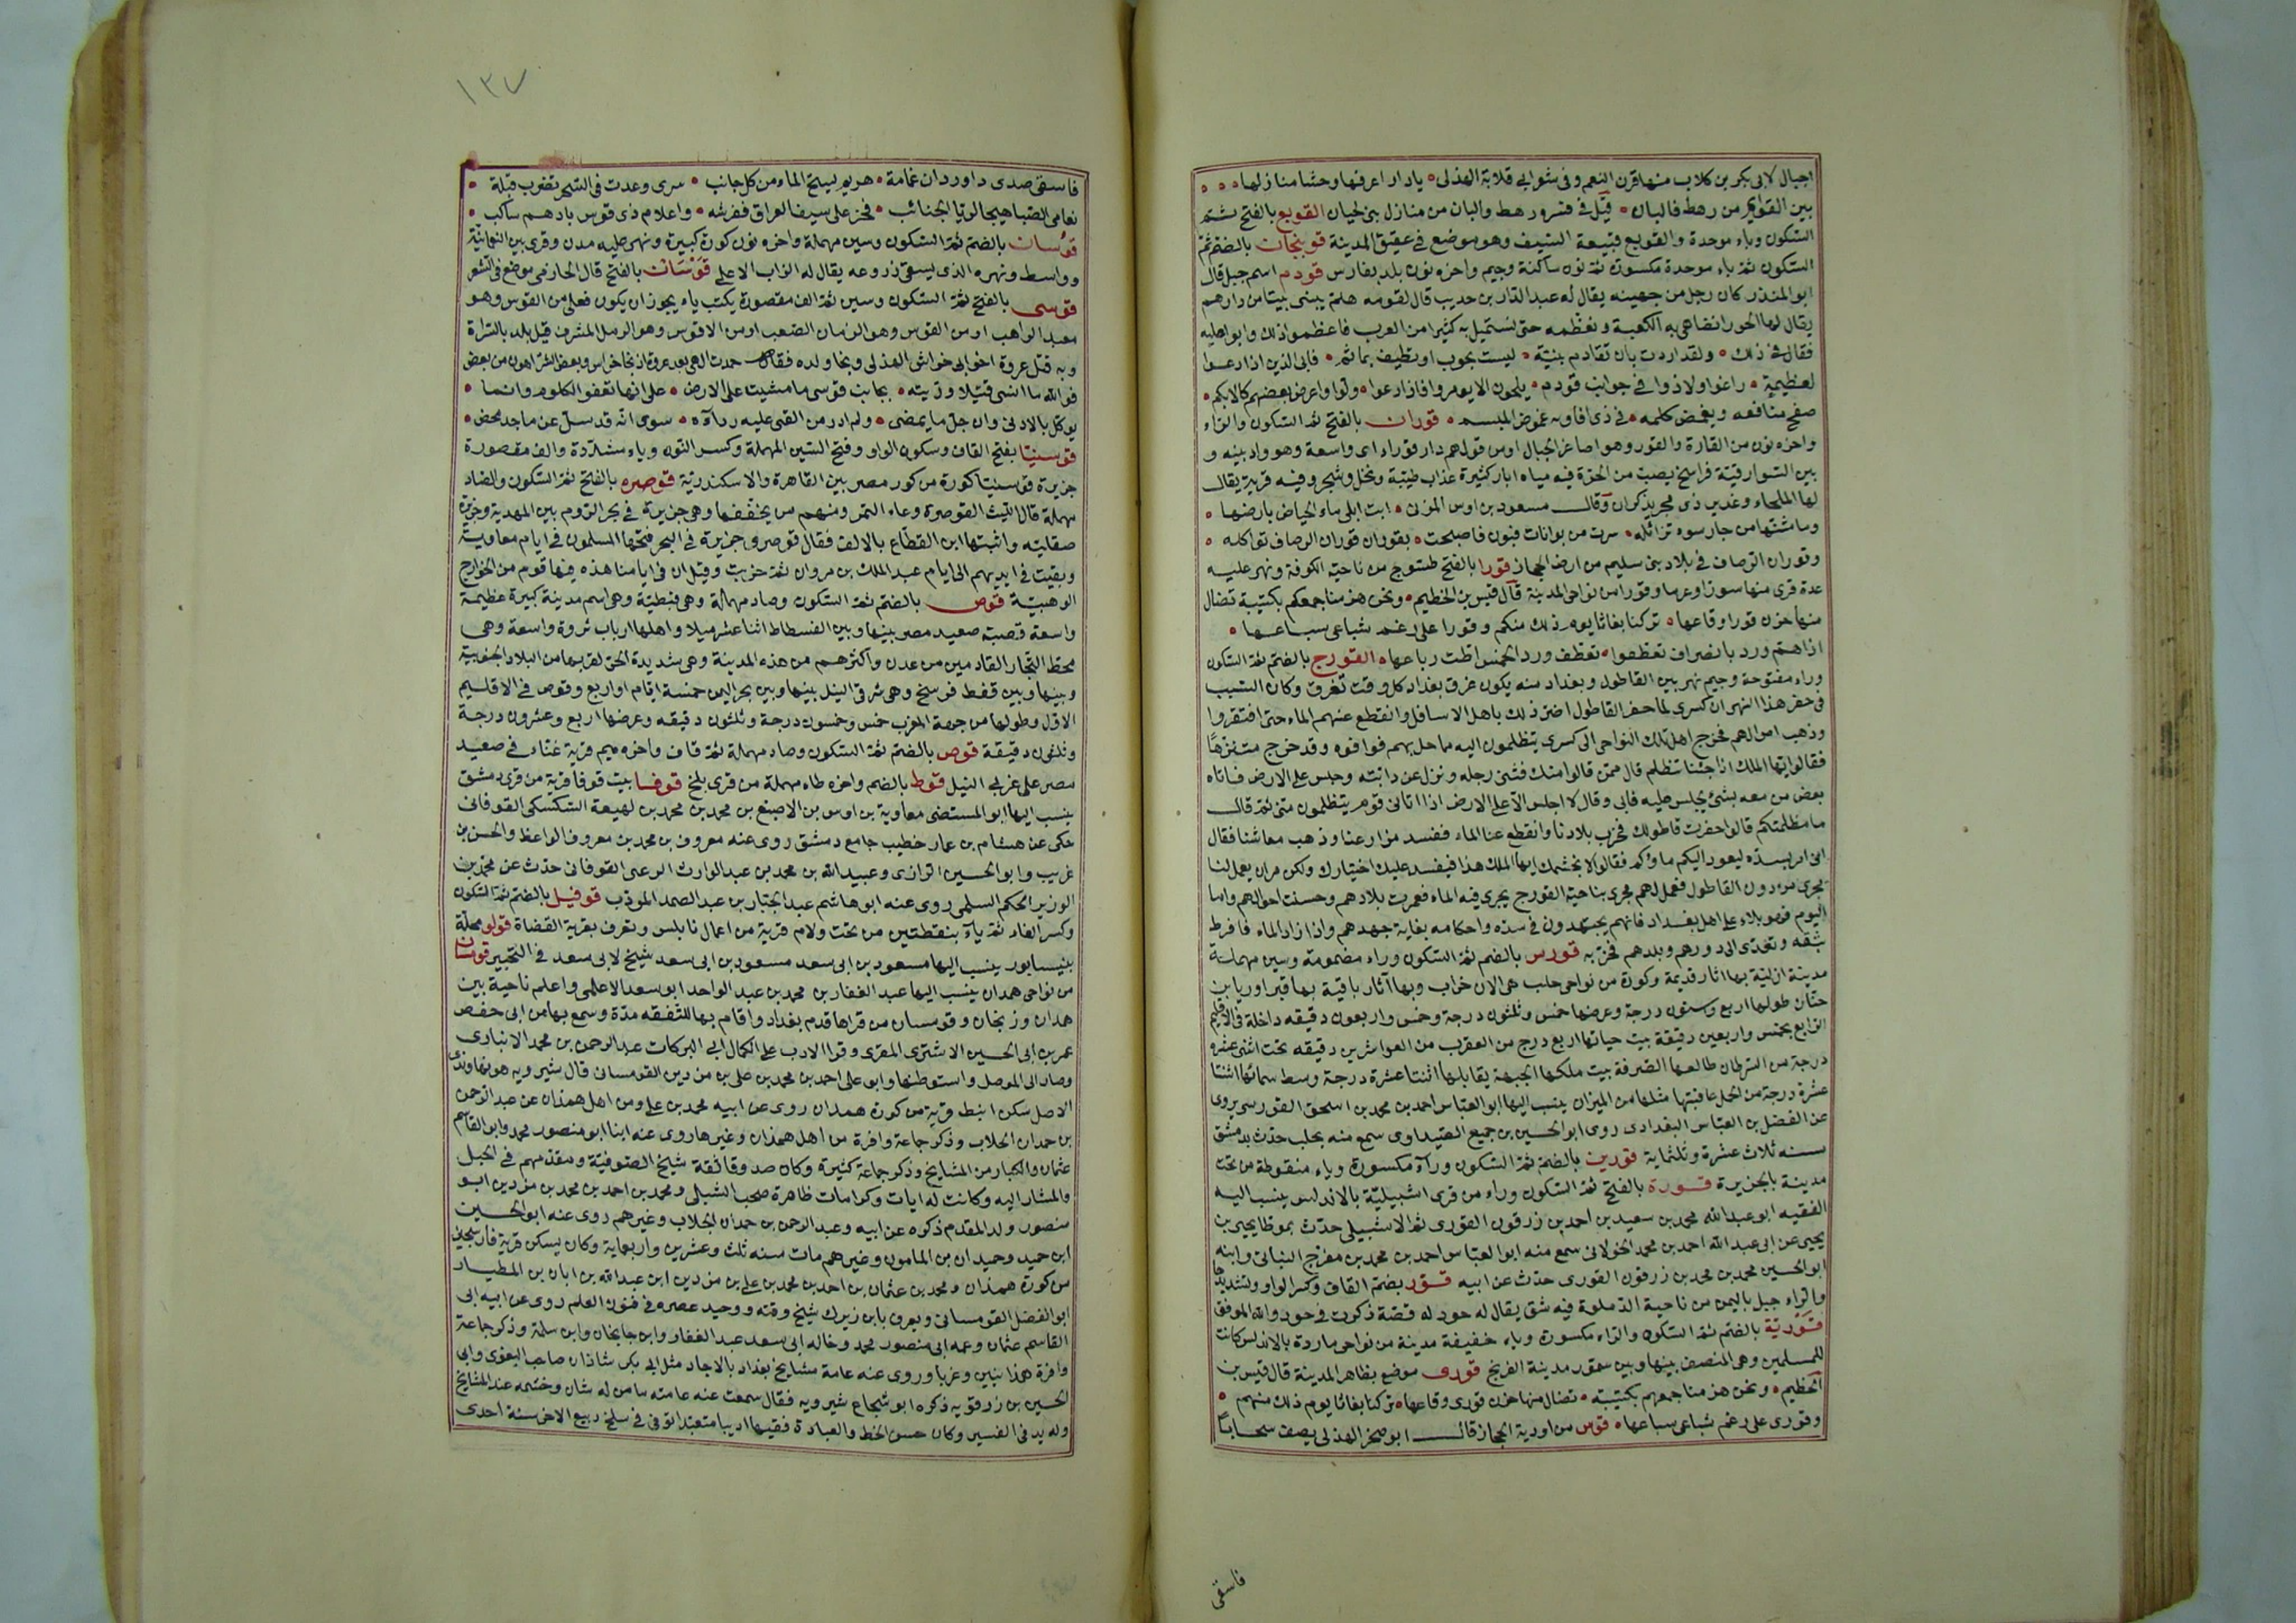 اجبال لابى بكر بن كلاب منها قرن النعم وفى شوابى قلابة الهذلى يادار اعرفها وحشا منازلها
بين القوايم من رهط فالبان قيل فى فسر ورهط والبان من منازل بنى لحيان القوبع بالفتح ثم
السكون وباء موحدة والقوبع قبيعة السيف وهو موضع فى عقيق المدينة قوبنجان بالضم ثم
السكون ثم باء موحدة مكسورة ثم نون ساكنة وجيم واخره نون بلد بفارس قودم اسم جبل قال
ابو المنذر كان رجل من جهينه يقال له عبد الدار بن حديب قال لقومه هلم نبنى بيتا من دارهم
يقال لها الحورا نضاهى به الكعبة ونعظمه حتى نستميل به كثيرا من العرب فاعظموا ذلك وابوا عليه
فقال فى ذلك ولقد اردت بان تقام بنية ليست بحوب او تطيف بماثم فابى الذين اذا دعوا
لعظيمة راغوا ولاذوا فى جوانب قودم يلحون الا يومروا فاذا دعوا ولوا واعرض بعضهم كالابكم
صفح منافعه ويغمض كلمه فى ذى اقاويه غموض المبسم قوران بالفتح ثم السكون والراء
واخره نون من القارة والقور وهو اصاغر الجبال او من قولهم دار قوراء اى واسعة وهو واد بينه و
بين السوارقية فراسخ يصب من الحرة فيه مياه ابار كثيرة عذاب طيبة ونخل وشجر وفيه قرية يقال
لها الملحاء وغدير ذى مجر يذكران وقال مسعود بن اوس المزنى ابت ابلى ماء الحياض بارضها
وما شتها من جار سوء تزائله سرت من بوانات فبون فاصبحت بقوران قوران الرصاف تواكله
وقوران الرصاف فى بلاد بنى سليم من ارض الحجاز قورا بالفتح طسوج من ناحية الكوفة ونهر عليه
عدة قرى منها سورا وغرما وقورا من نواحى المدينة قال قيس بن الخطيم ونحن هزمنا جمعكم بكتيبة تضال
منها حزن قورا وقاعها تركنا بغاثا يوم ذلك منكم وقورا على رغم شباعى سباعها
اذا هم ورد بانصراف تعطفوا تعطف ورد الخمس اطت رباعها القورج بالضم ثم السكون
وراء مفتوحة وجيم نهر بين القاطول وبغداد منه يكون غرق بغداد كل وقت تغرق وكان السبب
فى حفر هذا النهر ان كسرى لما حفر القاطول اضر ذلك باهل الاسافل وانقطع عنهم الماء حتى افتقروا
وذهب اموالهم فخرج اهل تلك النواحى الى كسرى يتظلمون اليه مما حل بهم فوافوه وقد خرج متنزها
فقالوا ايها الملك انا جئنا نتظلم قال ممن قالوا منك فثنى رجله ونزل عن دابته وجلس على الارض فاتاه
بعض من معه بشئ يجلس عليه فابى وقال لا اجلس الا على الارض اذا اتانى قوم يتظلمون منى ثم قال
ما مظلمتكم قالوا حفرت قاطولك فخرب بلادنا وانقطع عنا الماء ففسد مزارعنا وذهب معاشنا فقال
انى امر بسده ليعود اليكم ماؤكم فقالوا لا نجشمك ايها الملك هذا فيفسد عليك اختيارك ولكن مر ان يعمل لنا
مجرى من دون القاطول فعمل لهم مجرى بناحية القورج يجرى فيه الماء فعمرت بلادهم وحسنت احوالهم واما
اليوم فهو بلاء على اهل بغداد فانهم يجتهدون فى سده واحكامه بغاية جهدهم واذا زاد الماء فافرط
بثقه وتعدى الى دورهم وبلدهم فخربه قورس بالضم ثم السكون وراء مضمومة وسين مهملة
مدينة ازلية بها اثار قديمة وكورة من نواحى حلب هى الان خراب وبها آثار باقية بها قبر اوريا بن
حنان طولها اربع وستون درجة وعرضها خمس وثلثون درجة وخمس واربعون دقيقه داخلة فى الاقليم
الرابع بخمس واربعين دقيقة بيت حياتها اربع درج من العقرب من العواشرين دقيقه تحت اثنى عشره
درجة من السرطان طالعها الصرفة بيت ملكها الجبهة يقابلها اثنتا عشرة درجة وسط سمائها اثنتا
عشرة درجة من الحمل عاقبتها مثلها من الميزان ينسب اليها ابو العباس احمد بن محمد بن اسحق القورسى يروى
عن الفضل بن العباس البغدادى روى ابو الحسين بن جميع الصيداوى سمع منه بحلب حدث بدمشق
سنه ثلاث عشرة وثلثماية قورين بالضم ثم السكون ورآء مكسورة وياء منقوطة من تحت
مدينة بالجزيرة قورة بالفتح ثم السكون وراء من قرى اشبيلية بالاندلس ينسب اليه
الفقيه ابو عبد الله محمد بن سعيد بن احمد بن زرقون القورى ثم الاشبيلى حدث بموطا يحيى بن
يحيى عن ابى عبد الله احمد بن محمد الخولانى سمع منه ابو العباس احمد بن محمد بن مفرج النباتى وابنه
ابو الحسين محمد بن محمد بن زرقون القورى حدث عن ابيه قور بضم القاف وكسر الواو وتشديدها
والراء جبل باليمن من ناحية الدملوة فيه شق يقال له حود له قصة ذكرت فى حود والله الموفق
قورية بالضم ثم السكون والراء مكسورة وياء خفيفة مدينة من نواحى ماردة بالاندلس كانت
للمسلمين وهى المنصف بينها وبين سمورة مدينة الفرنج قورى موضع بظاهر المدينة قال قيس بن
الخطيم ونحن هزمنا جمعهم بكتيبته تضال منها حزن قورى وقاعها تركنا بغاثا يوم ذلك منهم
وقورى على رغم شباعى سباعها قوس من اودية الحجاز قال ابو صخر الهذلى يصف سحابا
فاسقى
١٣٧
فاسقى صدى داوردان غمامة هزيم يسح الماء من كل جانب سرى وغدت فى الشحر تضرب قبلة
نعامى الصبا هيجا لوتا الجنائب فخر على سيف العراق ففرشه واعلام ذى قوس بادهم ساكب
قوسان بالضم ثم السكون وسين مهملة واخره نون كورة كبيرة ونهر عليه مدن وقرى بين النعمانية
وواسط ونهره الذى يسقى زروعه يقال له الزاب الاعلى قوسان بالفتح قال الحازمى موضع فى الشعر
قوسى بالفتح ثم السكون وسين ثم الف مقصورة يكتب ياء يجوز ان يكون فعلى من القوس وهو
معبد الراهب او من القوس وهو الزمان الصعب او من الاقوس وهو الرمل المشرف قيل بلد بالسراة
وبه قتل عروة اخو ابى خراش الهذلى ونجا ولده فقال حمدت الهى بعد عروة اذ نجا خراش وبعض الشر اهون من بعض
فوالله ما انسى قتيلا رزيته بجانب قوسى ما مشيت على الارض على انها تعفو الكلوم وانما
يوكل بالادنى وان جل ما يمضى ولم ادر من القى عليه ردآءه سوى انه قد سل عن ماجد محض
قوسنيا بفتح القاف وسكون الواو وفتح السين المهملة وكسر النون وياء مشددة والف مقصورة
جزيرة قوسنيا كورة من كور مصر بين القاهرة والاسكندرية قوصره بالفتح ثم السكون والصاد
مهملة قال الليث القوصرة وعاء التمر ومنهم من يخففها وهى جزيرة فى بحر الروم بين المهدية وجزيرة
صقلية واثبتها ابن القطاع بالالف فقال قوصرى جزيرة فى البحر فتحها المسلمون فى ايام معاوية
وبقيت فى ايديهم الى ايام عبد الملك بن مروان ثم خربت وقيل ان فى ايامنا هذه فيها قوم من الخوارج
الوهبية قوص بالضم ثم السكون وصاد مهملة وهى قبطية وهى اسم مدينة كبيرة عظيمة
واسعة قصبة صعيد مصر بينها وبين الفسطاط اثنا عشر ميلا واهلها ارباب ثروة واسعة وهى
محط التجار القادمين من عدن واكثرهم من هذه المدينة وهى شديدة الحر لقربها من البلاد الجنوبية
وبينها وبين قفط فرسخ وهى شرقى النيل بينها وبين بحر اليمن خمسة ايام او اربع وقوص فى الاقليم
الاول وطولها من جهة المغرب خمس وخمسون درجة وثلثون دقيقه وعرضها اربع وعشرون درجة
وثلثون دقيقة قوص بالضم ثم السكون وصاد مهملة ثم قاف واخره ميم قرية غناء فى صعيد
مصر على غربى النيل قوط بالضم واخره طاء مهملة من قرى بلخ قوفا بيت قوفا قرية من قرى دمشق
ينسب اليها ابو المستضى معاوية بن اوس بن الاصبغ بن محمد بن محمد بن لهيعة السكسكى القوفانى
حكى عن هشام بن عمار خطيب جامع دمشق روى عنه معروف بن محمد بن معروف الواعظ والحسن بن
غريب وابو الحسين الرازى وعبيد الله بن محمد بن عبد الوارث الرعى القوفانى حدث عن محمد بن
الوزير الحكم السلمى روى عنه ابو هاشم عبد الجبار بن عبد الصمد المودب قوفيل بالضم ثم السكون
وكسر الفاء ثم يآء بنقطتين من تحت ولام قرية من اعمال نابلس وتعرف بقرية القضاة قولو محلة
بنيسابور ينسب اليها مسعود بن ابى سعد مسعود بن ابى سعد شيخ لابى سعد فى التحبير قومسان
من نواحى همدان ينسب اليها عبد الغفار بن محمد بن عبد الواحد ابو سعد الاعلمى واعلم ناحية بين
همدان وزنجان وقومسان من قراها قدم بغداد واقام بها للتفقه مدة وسمع بها من ابى حفص
عمر بن ابى الحسين الاشترى المقرى وقرا الادب على الكمال ابى البركات عبد الرحمن بن محمد الانبارى
وصار الى الموصل واستوطنها وابو على احمد بن محمد بن على بن مردين القومسانى قال شيرويه هو نهاوندى
الاصل سكن انبط قرية من كورة همدان روى عن ابيه محمد بن على ومن اهل همذان عن عبد الرحمن
بن حمدان الجلاب وذكر جماعة وافرة من اهل همذان وغيرها روى عنه ابنا ابو منصور محمد وابو القاسم
عثمان والكبار من المشايخ وذكر جماعة كثيرة وكان صدوقا ثقة شيخ الصوفية ومقدمهم فى الجبل
والمشار اليه وكانت له ايات وكرامات ظاهرة صحب الشبلى ومحمد بن احمد بن محمد بن مزدين ابو
منصور ولد المقدم ذكره عن ابيه وعبد الرحمن بن حمدان الجلاب وغيرهم روى عنه ابو الحسين
ابن حميد وحميد ان بن المامون وغيرهم مات سنه ثلث وعشرين واربعماية وكان يسكن قرية فارسجين
من كورة همذان ومحمد بن عثمان بن احمد بن محمد بن على بن مزدين ابن عبد الله بن ابان بن المطيار
ابو الفضل القومسانى ويعرف بابن زيرك شيخ وقته ووحيد عصره فى فنون العلم روى عن ابيه ابى
القاسم عثمان وعمه ابى منصور محمد وخاله ابى سعد عبد الغفار وابن جانجان وابن سلمة وذكر جماعة
وافرة همذانيين وغربا وروى عنه عامة مشايخ بغداد بالاجاد مثل ابى بكر شاذان صاحب البغوى وابى
الحسين بن رزقويه ذكره ابو شجاع شيرويه فقال سمعت عنه عامته ما من له شان وحشمه عند المشايخ
وله يد فى الفسير وكان حسن الخط والعبادة فقيها اديبا متعبدا توفى فى سلخ ربيع الاخر سنة احدى